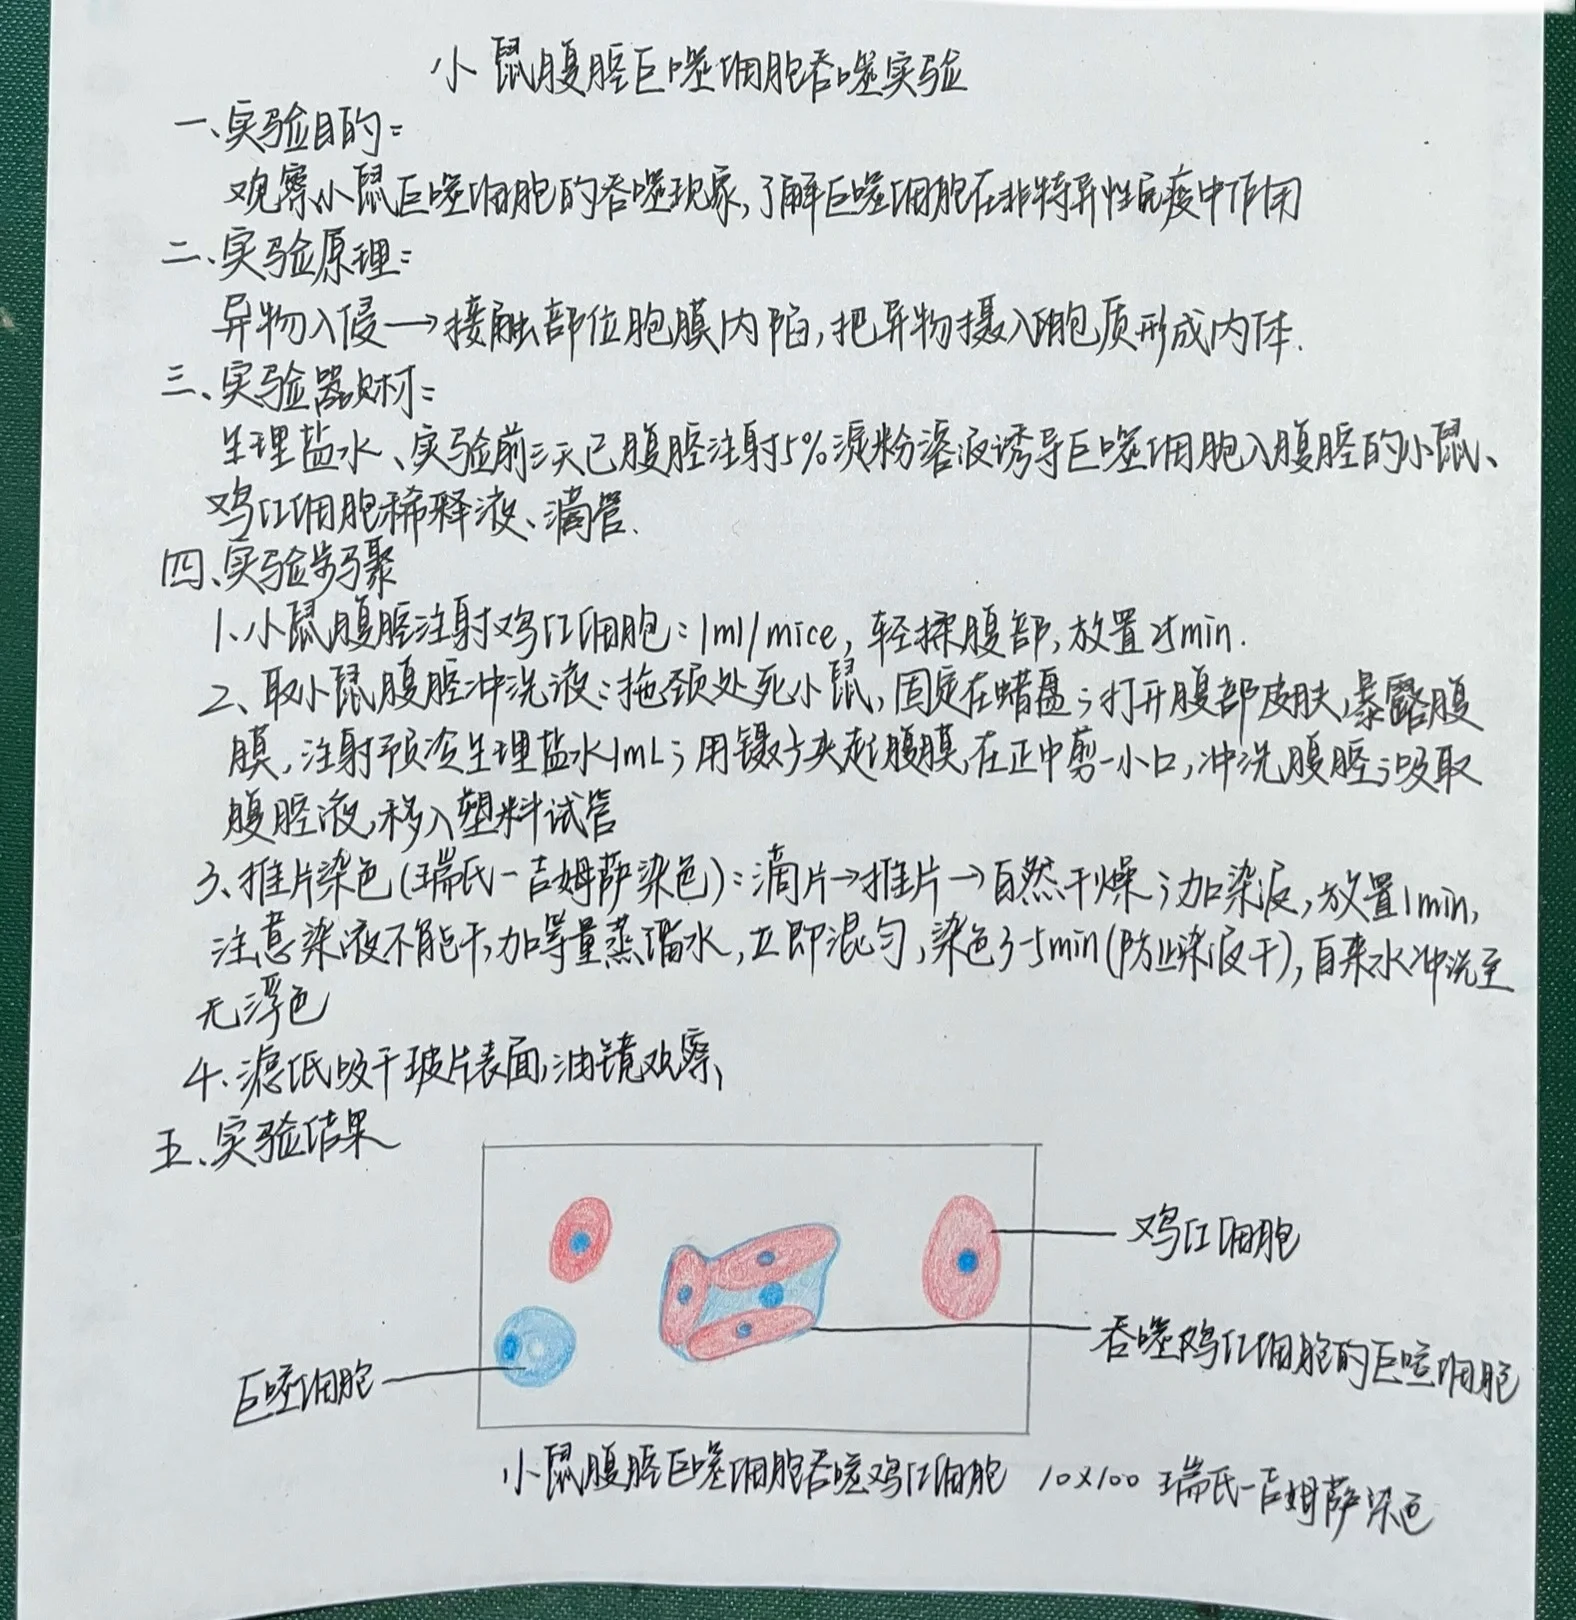 小鼠腹腔巨噬细胞吞噬实验
一、实验目的:
观察小鼠巨噬细胞的吞噬现象,了解巨噬细胞在非特异性免疫中作用
二、实验原理:
异物入侵→接触部位胞膜内陷,把异物摄入胞质形成内体.
三、实验器材:
生理盐水、实验前三天已腹腔注射5%淀粉溶液诱导巨噬细胞入腹腔的小鼠、
鸡红细胞稀释液、滴管.
四、实验步骤
1、小鼠腹腔注射鸡红细胞:1ml/mice,轻揉腹部,放置25min.
2、取小鼠腹腔冲洗液:拖颈处死小鼠,固定在蜡盘;打开腹部皮肤,暴露腹
膜,注射预冷生理盐水1mL;用镊子夹起腹膜,在正中剪一小口,冲洗腹腔;吸取
腹腔液,移入塑料试管
3、推片染色(瑞氏-吉姆萨染色):滴片→推片→自然干燥;加染液,放置1min,
注意染液不能干,加等量蒸馏水,立即混匀,染色3-5min(防止染液干),自来水冲洗至
无浮色
4、滤纸吸干玻片表面,油镜观察,
五、实验结果
鸡红细胞
吞噬鸡红细胞的巨噬细胞
巨噬细胞
小鼠腹腔巨噬细胞吞噬鸡红细胞 10×100 瑞氏-吉姆萨染色